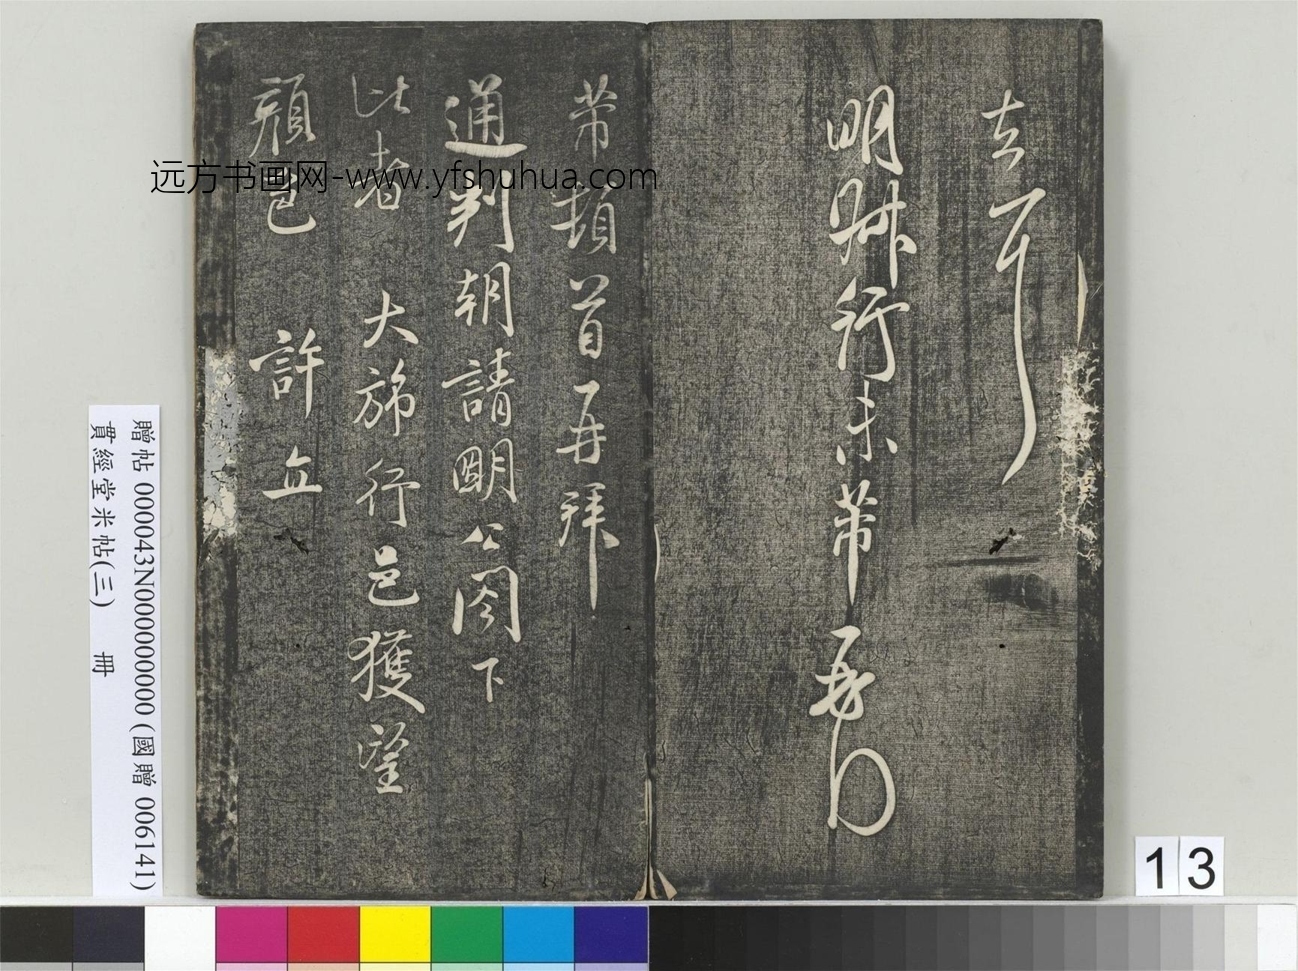 明
行 芾 再
芾頓首再拜
通判朝請明公閣下
比者 大旆行邑獲望
顏色 許立
远方书画网-www.yfshuhua.com
贈帖 000043N000000000 (國贈 006141)
貫經堂米帖(三) 冊
13